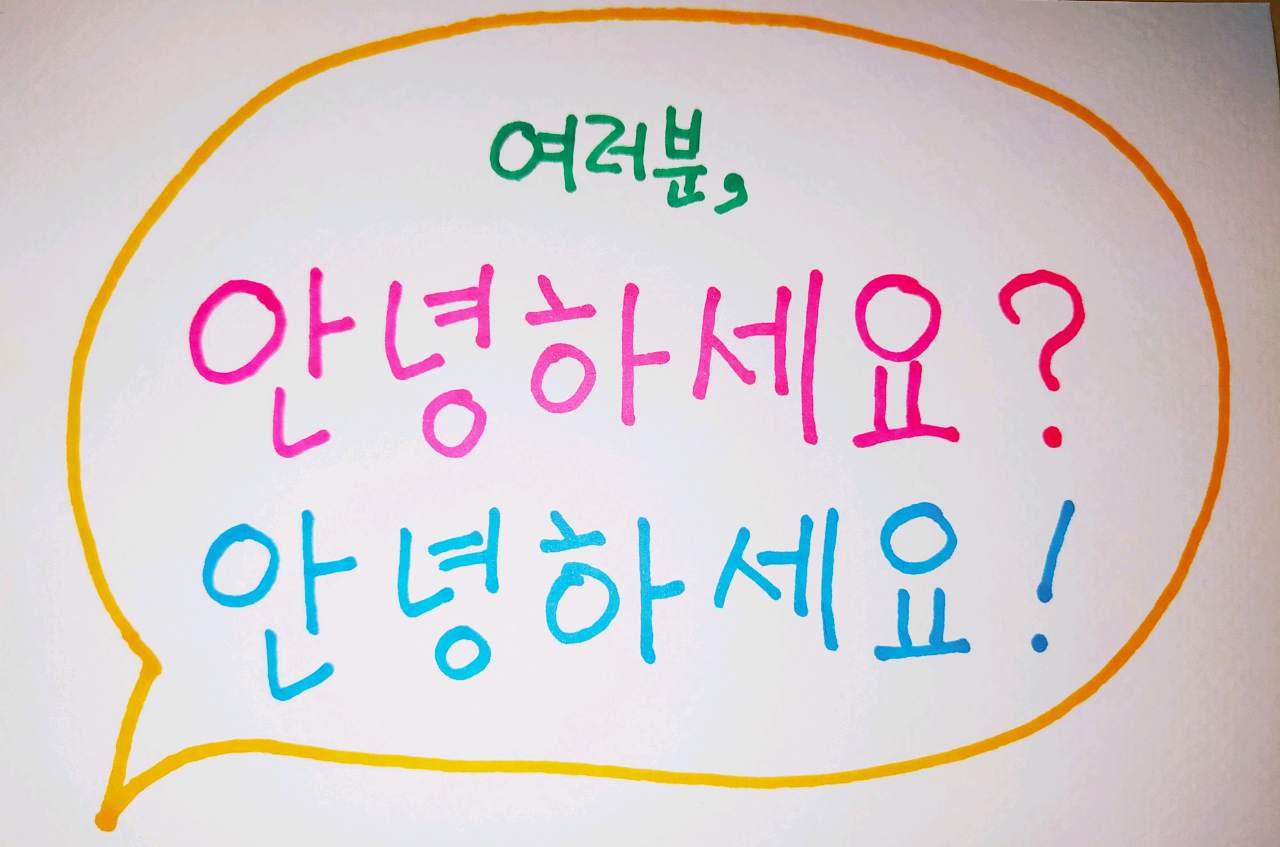 여러분,
안녕하세요?
안녕하세요!